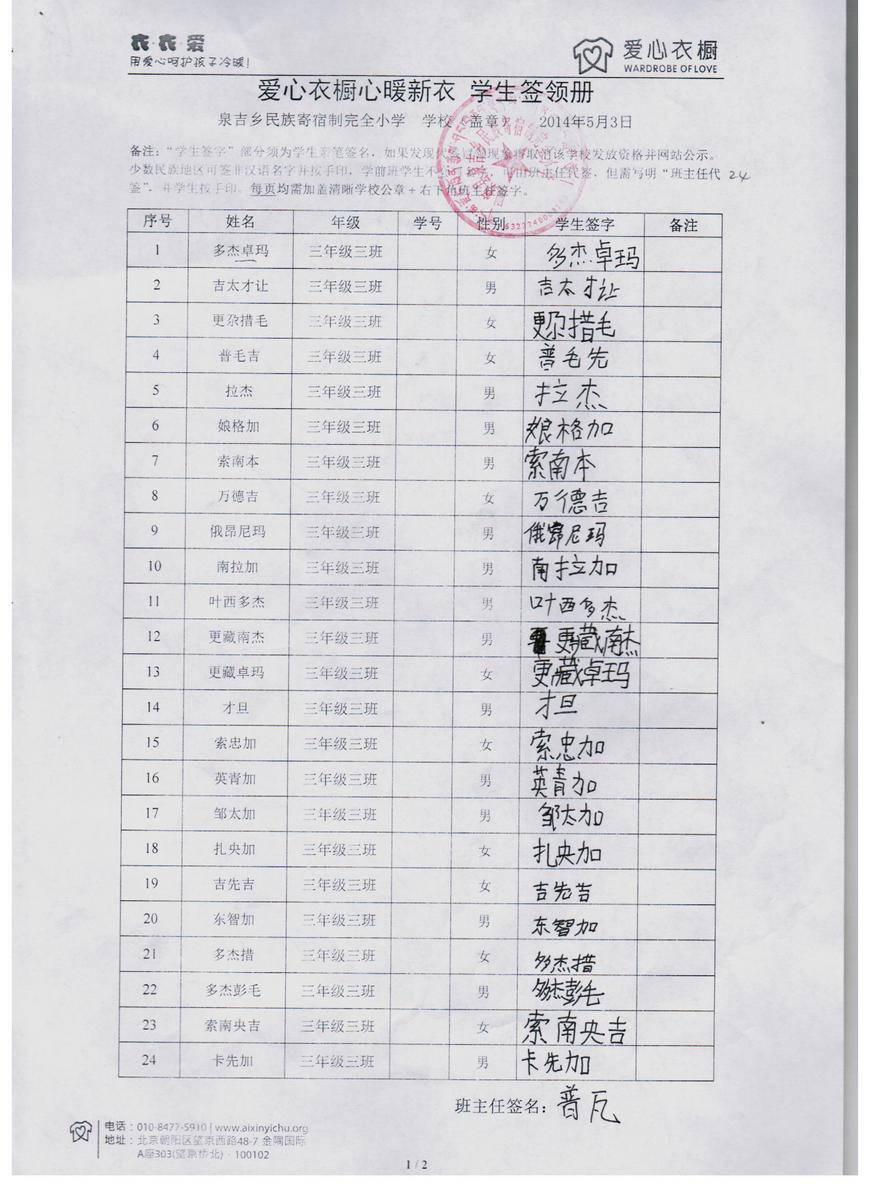 衣·衣·爱
用爱心呵护孩子冷暖!
爱心衣橱
WARDROBE OF LOVE
爱心衣橱心暖新衣 学生签领册
泉吉乡民族寄宿制完全小学 学校（盖章） 2014年5月3日
备注：“学生签字”部分须为学生亲笔签名，如果发现代签冒签现象将取消该学校发放资格并网站公示。
少数民族地区可签非汉语名字并按手印，学前班学生不 可由班主任代签，但需写明“班主任代
签”，并学生按手印。每页均需加盖清晰学校公章+右下角班主任签字。
24
序号 姓名 年级 学号 性别 学生签字 备注
1 多杰卓玛 三年级三班 女 多杰卓玛
2 吉太才让 三年级三班 男 吉太才让
3 更尕措毛 三年级三班 女 更尕措毛
4 普毛吉 三年级三班 女 普毛先
5 拉杰 三年级三班 男 拉杰
6 娘格加 三年级三班 男 娘格加
7 索南本 三年级三班 男 索南本
8 万德吉 三年级三班 女 万德吉
9 俄昂尼玛 三年级三班 男 俄昂尼玛
10 南拉加 三年级三班 男 南拉加
11 叶西多杰 三年级三班 男 叶西多杰
12 更藏南杰 三年级三班 男 更藏南杰
13 更藏卓玛 三年级三班 女 更藏卓玛
14 才旦 三年级三班 男 才旦
15 索忠加 三年级三班 女 索忠加
16 英青加 三年级三班 男 英青加
17 邹太加 三年级三班 男 邹太加
18 扎央加 三年级三班 女 扎央加
19 吉先吉 三年级三班 女 吉先吉
20 东智加 三年级三班 男 东智加
21 多杰措 三年级三班 女 多杰措
22 多杰彭毛 三年级三班 男 多杰彭毛
23 索南央吉 三年级三班 女 索南央吉
24 卡先加 三年级三班 男 卡先加
班主任签名：普瓦
电话：010-8477-5910 | www.aixinyichu.org
地址：北京朝阳区望京西路48-7 金隅国际
A座303(望京桥北) · 100102
1 / 2